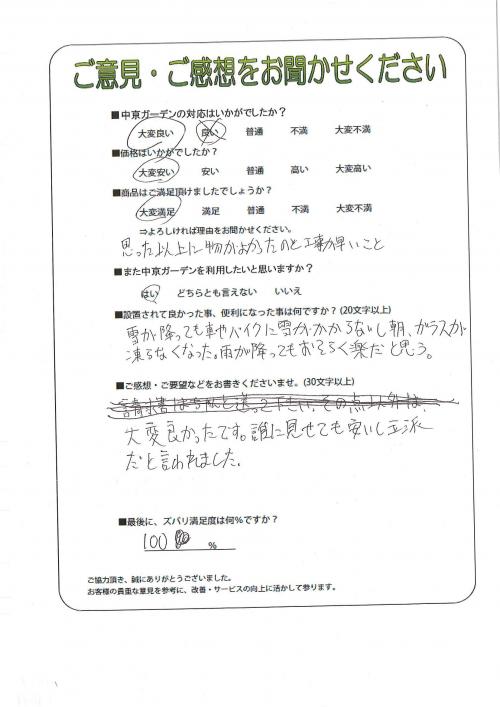 ご意見・ご感想をお聞かせください
■中京ガーデンの対応はいかがでしたか？
大変良い 良い 普通 不満 大変不満
■価格はいかがでしたか？
大変安い 安い 普通 高い 大変高い
■商品はご満足頂けましたでしょうか？
大変満足 満足 普通 不満 大変不満
⇒よろしければ理由をお聞かせください。
思った以上に物がよかったのと工事が早いこと
■また中京ガーデンを利用したいと思いますか？
はい どちらとも言えない いいえ
■設置されて良かった事、便利になった事は何ですか？(20文字以上)
雪が降っても車やバイクに雪がかからないし朝、ガラスが
凍らなくなった。雨が降ってもおそらく楽だと思う。
■ご感想・ご要望などをお書きくださいませ。(30文字以上)
請求書はちゃんと送って下さい。その点以外は、
大変良かったです。誰に見せても安いし立派
だと言われました。
■最後に、ズバリ満足度は何％ですか？
100 ％
ご協力頂き、誠にありがとうございました。
お客様の貴重な意見を参考に、改善・サービスの向上に活かして参ります。